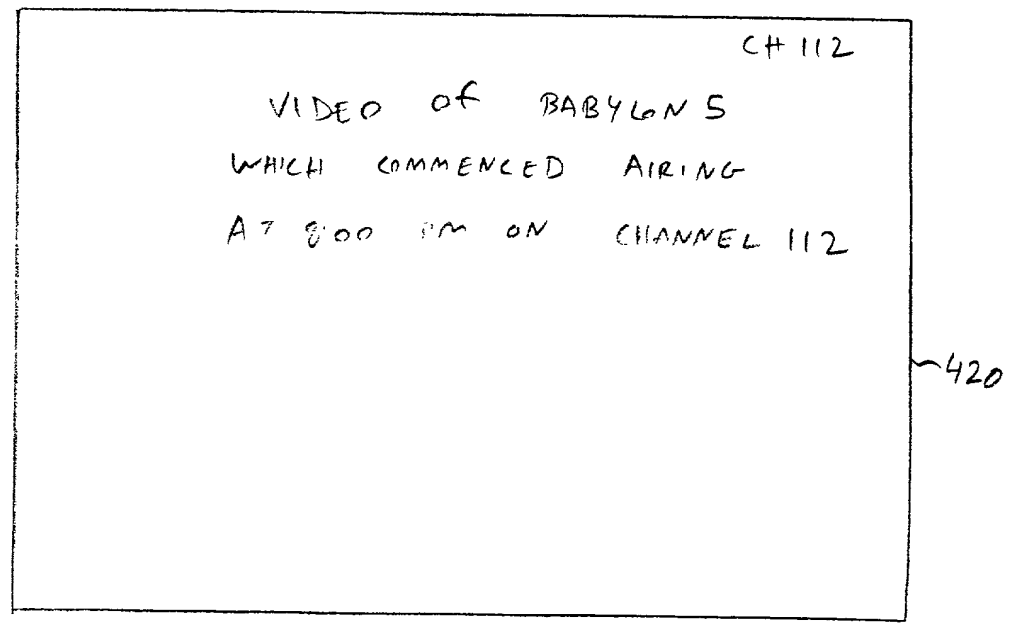 CH 112
VIDEO of BABYLON 5
WHICH COMMENCED AIRING
AT 8:00 PM ON CHANNEL 112
420